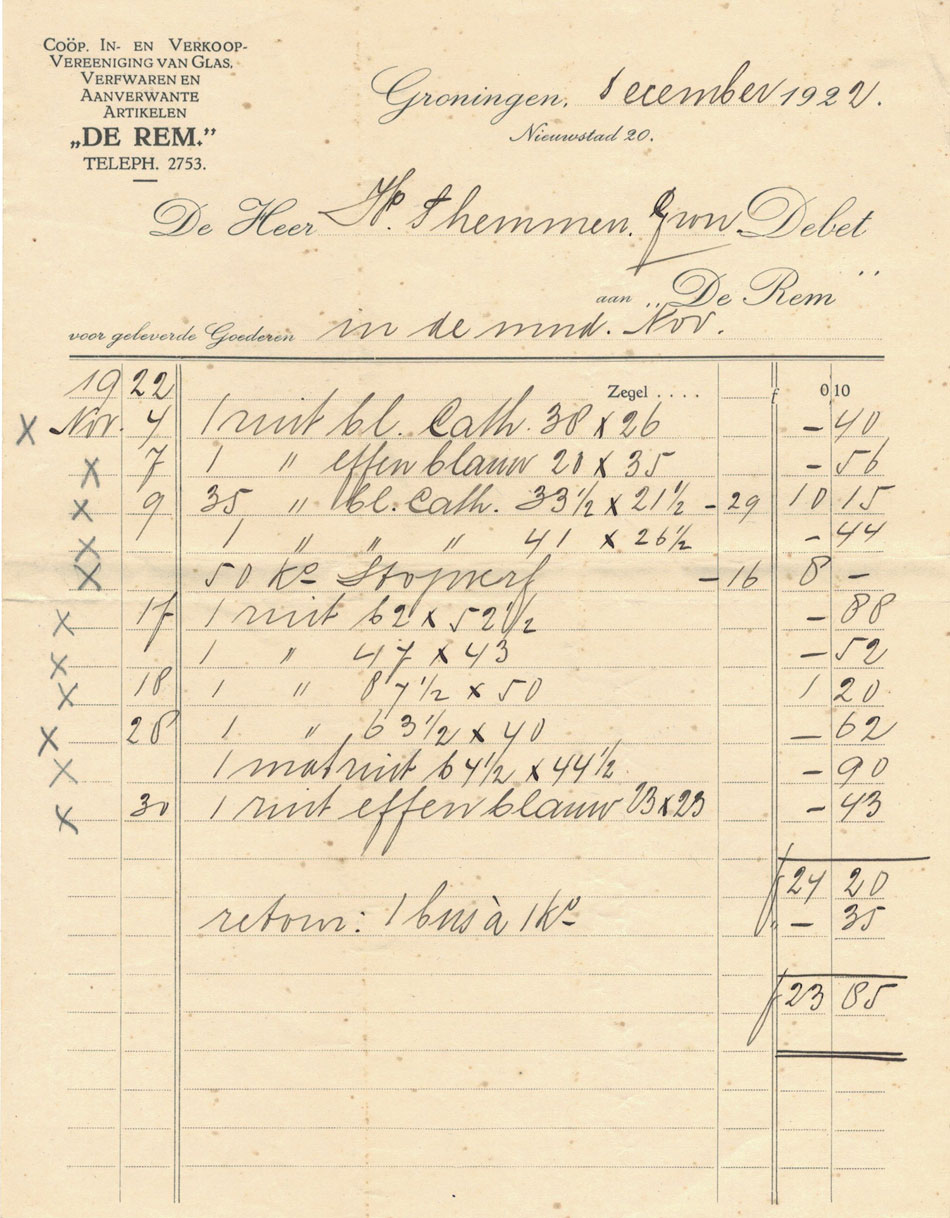 COÖP. IN- EN VERKOOP-
VEREENIGING VAN GLAS,
VERFWAREN EN
AANVERWANTE
ARTIKELEN
„DE REM.”
TELEPH. 2753.
Groningen, December 1922.
Nieuwstad 20.
De Heer Hk. Themmen. Gron. Debet
aan „De Rem”
voor geleverde Goederen in de mnd. Nov.
1922 Zegel .... f 0 10
x Nov. 4 1 ruit bl. Cath. 38 x 26 - 40
x 7 1 " effen blauw 20 x 35 - 56
x 9 35 " bl. Cath. 33 1/2 x 21 1/2 - 29 10 15
x 1 " " " 41 x 26 1/2 - 44
x 50 Ko Stopverf - 16 8 -
x 17 1 ruit 62 x 52 1/2 - 88
x 1 " 47 x 43 - 52
x 18 1 " 87 1/2 x 50 1 20
x 28 1 " 63 1/2 x 40 - 62
x 1 matruit 64 1/2 x 44 1/2 - 90
x 30 1 ruit effen blauw 23 x 23 - 43
f 24 20
retour: 1 bus à 1 Ko " - 35
f 23 85